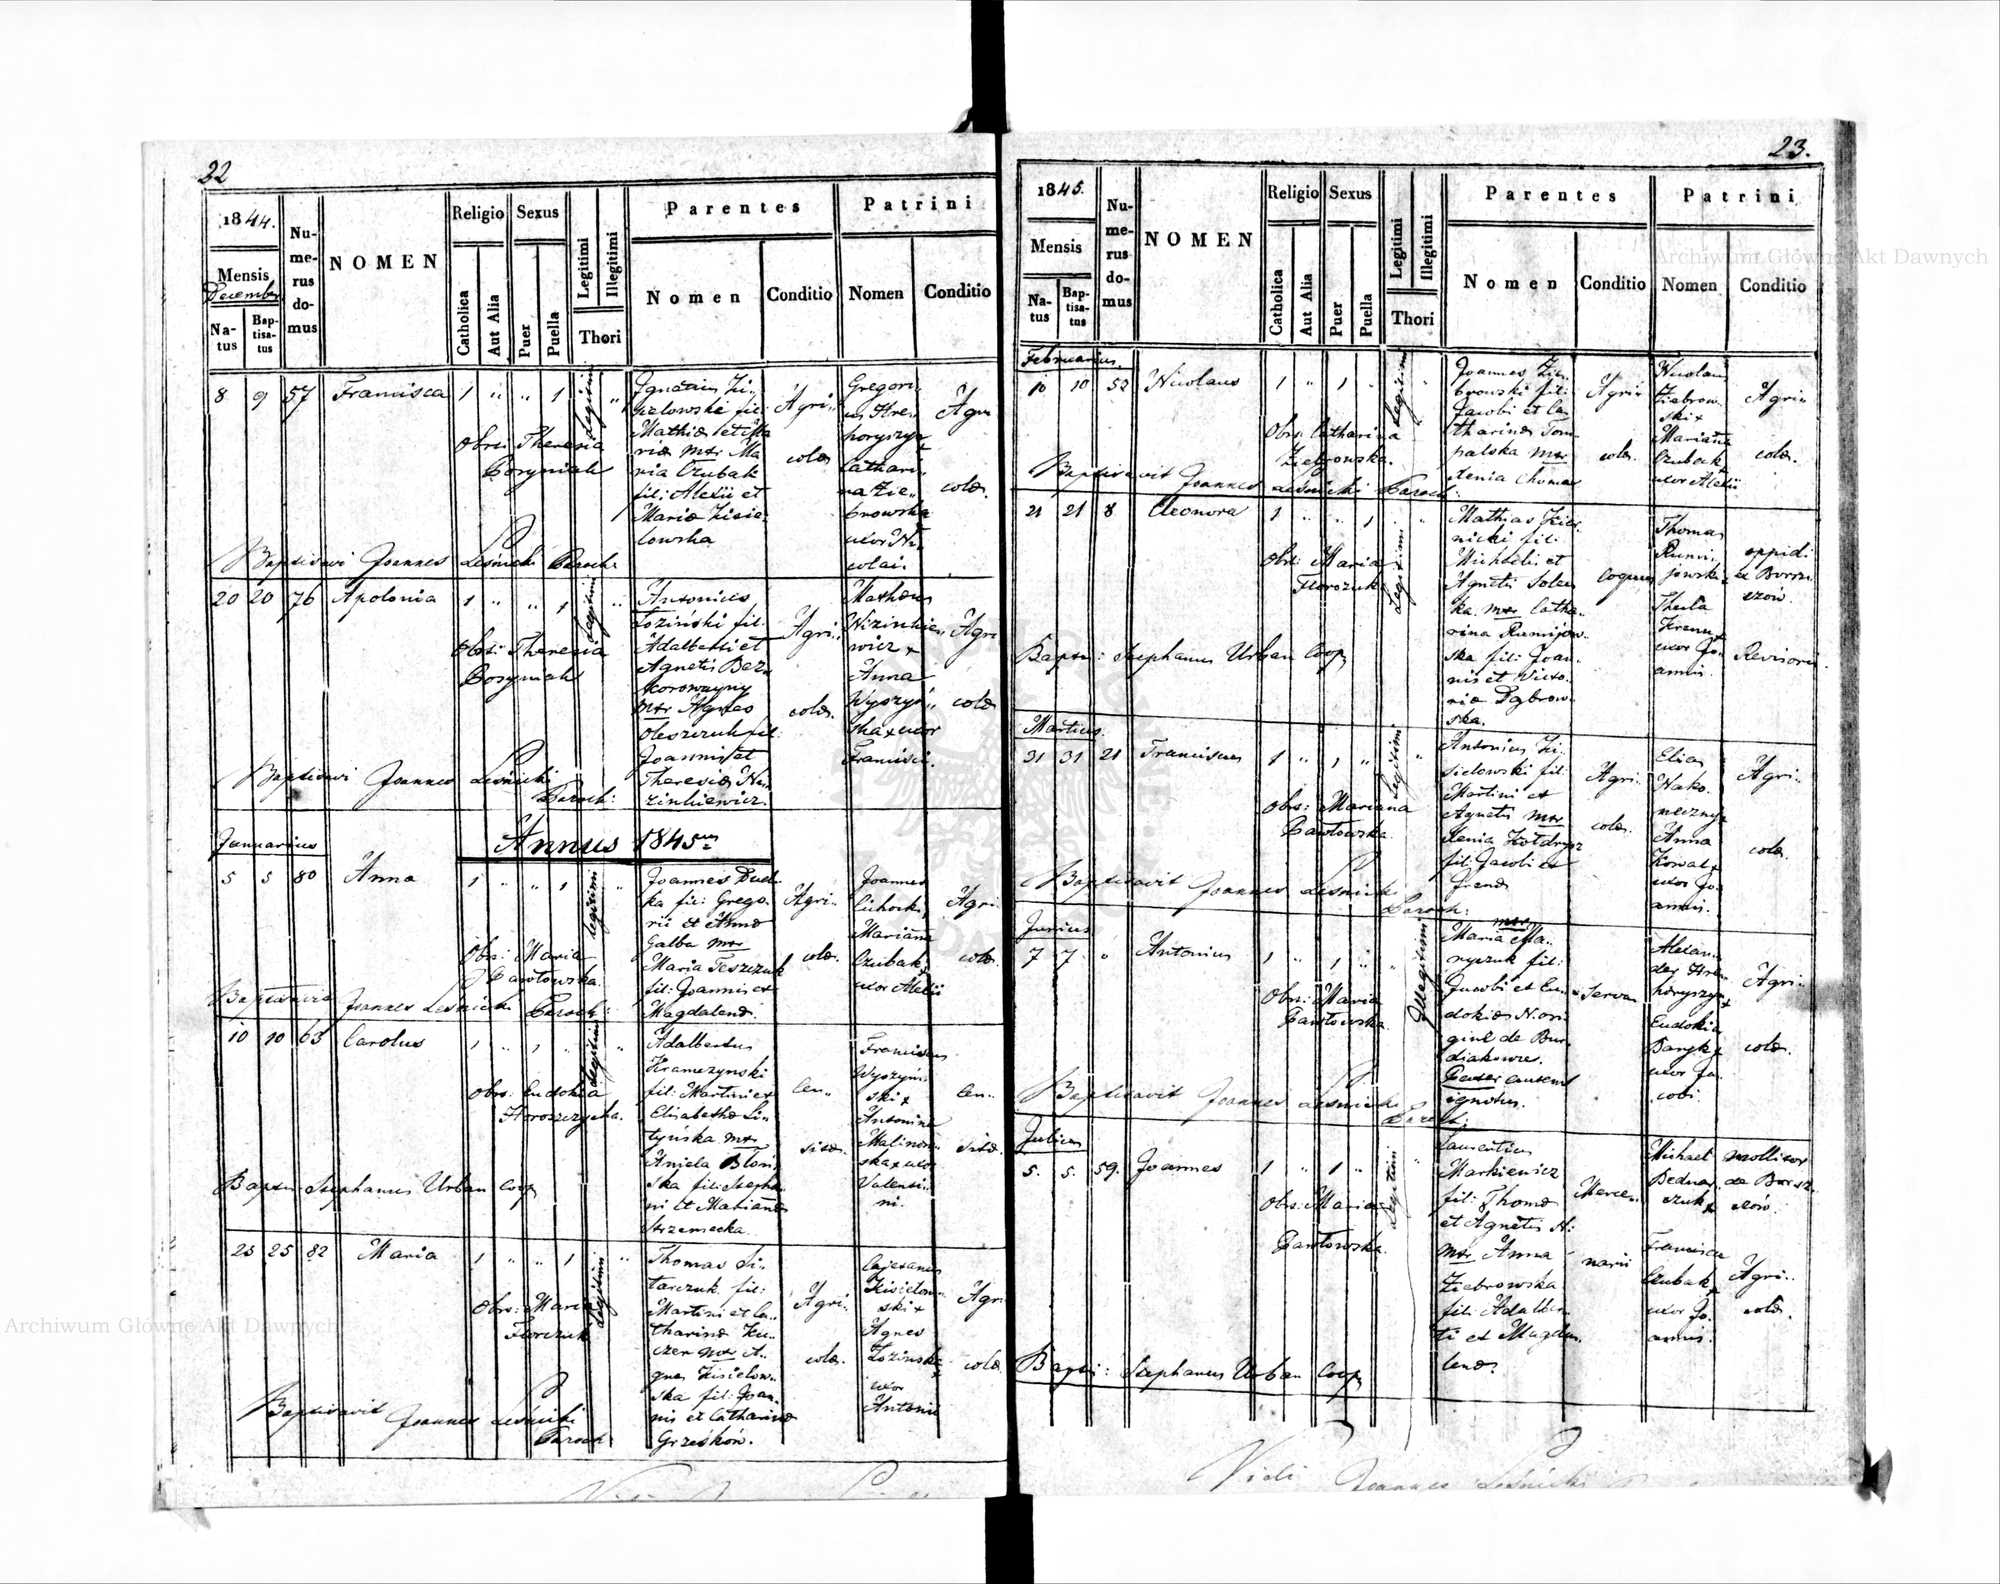 22
1844.
Mensis
Decembr
Na-
tus
Bap-
tisa-
tus
Nu-
me-
rus
do-
mus
NOMEN
Religio
Catholica
Aut Alia
Sexus
Puer
Puella
Legitimi
Illegitimi
Thori
Parentes
Nomen
Conditio
Patrini
Nomen
Conditio
8 9 57 Francisca 1 " " 1 Legitimi "
Obst: Theresia
Ignatius
fil:
Mathiæ et Ma
riæ mtr Ma
ria Czubak
fil: Alexii et
Mariæ Zisie
lowska
Agri-
colæ
Gregori
us Hre
horyszyn
Cathari
na Zie
browska
uxor Ni
colai.
Agri
colæ.
Baptisavi Joannes Leśnicki Paroch:
20 20 76 Apolonia 1 " " 1 Legitimi "
Obst: Theresia
Antonius
Łozinski fil:
Adalberti et
Agnetis Bez
korowayny
mtr Agnes
Oleszczuk fil:
Joannis et
Theresiæ Ni
zinkiewicz.
Agri-
colæ.
Mathæus
Nizinkie
wicz x
Anna
Wyszyń
ska x uxor
Francisci.
Agri
colæ
Baptisavi Joannes Leśnicki
Paroch:
Januarius
Annus 1845us
5 5 80 Anna 1 " " 1 Legitimi "
Obst: Maria
Pawłowska.
Joannes Dud
ka fil: Grego
rii et Annæ
Galba mtr
Maria Leszczuk
fil: Joannis et
Magdalenæ.
Agri-
colæ.
Joannes
Cichocki,
Marianna
Czubak x
uxor Alexii
Agri-
colæ.
Baptisavit Joannes Leśnicki Paroch:
10 10 63 Carolus 1 " 1 " Legitimi "
Obst: Eudokia
Horoszczycha.
Adalbertus
Kramczynski
fil: Martini et
Elisabethæ Li
tyńska mtr
Aniela Błoń
ska fil: Stepha
ni et Mariannæ
Strzemecka.
Francisus
Wyszyń
ski x
Antonina
Malinow
ska x uxor
Valenti
ni.
Bapts: Stephanus Urban Coop
25 25 82 Maria 1 " " 1 Legitimi "
Obst: Maria
Florczuk
Thomas Li-
tarczuk fil:
Martini et Ca
tharinæ Ku
czer mtr A-
gnes Kisielow
ska fil: Joan
nis et Catharinæ
Grześków.
Agri-
colæ.
Cajetanus
Kisielow
ski x
Agnes
Łozinska
uxor
Antonii
Agri
colæ
Baptisavit Joannes Leśnicki
Paroch:
23.
1845.
Mensis
Na-
tus
Bap-
tisa-
tus
Nu-
me-
rus
do-
mus
NOMEN
Religio
Catholica
Aut Alia
Sexus
Puer
Puella
Legitimi
Illegitimi
Thori
Parentes
Nomen
Conditio
Patrini
Nomen
Conditio
Februarius.
10 10 52 Nicolaus 1 " 1 " Legitimi "
Obst: Catharina
Joannes Zie
browski fil:
Jacobi et Ca
tharinæ Tom
palska mtr
Xenia Choma
Agri-
colæ.
Nicolaus
Ziebrow
ski x
Marianna
Czubak x
uxor Alexii
Agri-
colæ.
Baptisavit Joannes Leśnicki Paroch:
21 21 8 Eleonora 1 " " 1 Legitimi "
Obst: Maria
Florczuk
Mathias
nicki fil:
Michaelis et
Agnetis
ska mtr Catha
rina Rumijow
ska fil: Joan
nis et Victo
riæ Dąbrow
ska.
Coquus
Thomas
Rumi
jowski
Thecla
uxor Jo
annis.
oppid:
Revisoris
Bapts: Stephanus Urban Coop
Martius.
31 31 21 Franciscus 1 " 1 " Legitimi "
Obst: Marianna
Pawłowska.
Antonius Ki
sielowski fil:
Martini et
Agnetis mtr
Xenia
fil: Jacobi et
Agri-
colæ.
Elias
Nako
neczny
Anna
Kowal x
uxor Jo
annis.
Agri-
colæ.
Baptisavit Joannes Leśnicki
Paroch:
Junius
7 7 " Antonius 1 " 1 " " Illegitimi
Obst: Maria
Pawłowska.
mtr
Maria Ma-
ryczuk fil:
Jacobi et Eu
dokiæ N. ori
ginæ de Bur
diakowce.
Pater autem
ignotus.
Serva
Alexan
der Hre
horyszyn x
Eudokia
uxor Ja
cobi.
Agri-
colæ.
Baptisavit Joannes Leśnicki
Paroch:
Julius
5. 5. 59. Joannes 1 " 1 " Legitimi "
Obst: Maria
Pawłowska.
Laurentius
Markiewicz
fil: Thomæ
et Agnetis N:
mtr Anna
Ziebrowska
fil: Adalber
ti et Magda
lenæ
Merce-
narii
Michael
Bednar
czuk x
Francisca
Czubak x
uxor Jo
annis.
mollitor
de Borsz
czów.
Agri-
colæ.
Bapts: Stephanus Urban Coop
Vidi Joannes Leśnicki
Archiwum Główne Akt Dawnych
Archiwum Główne Akt Dawnych